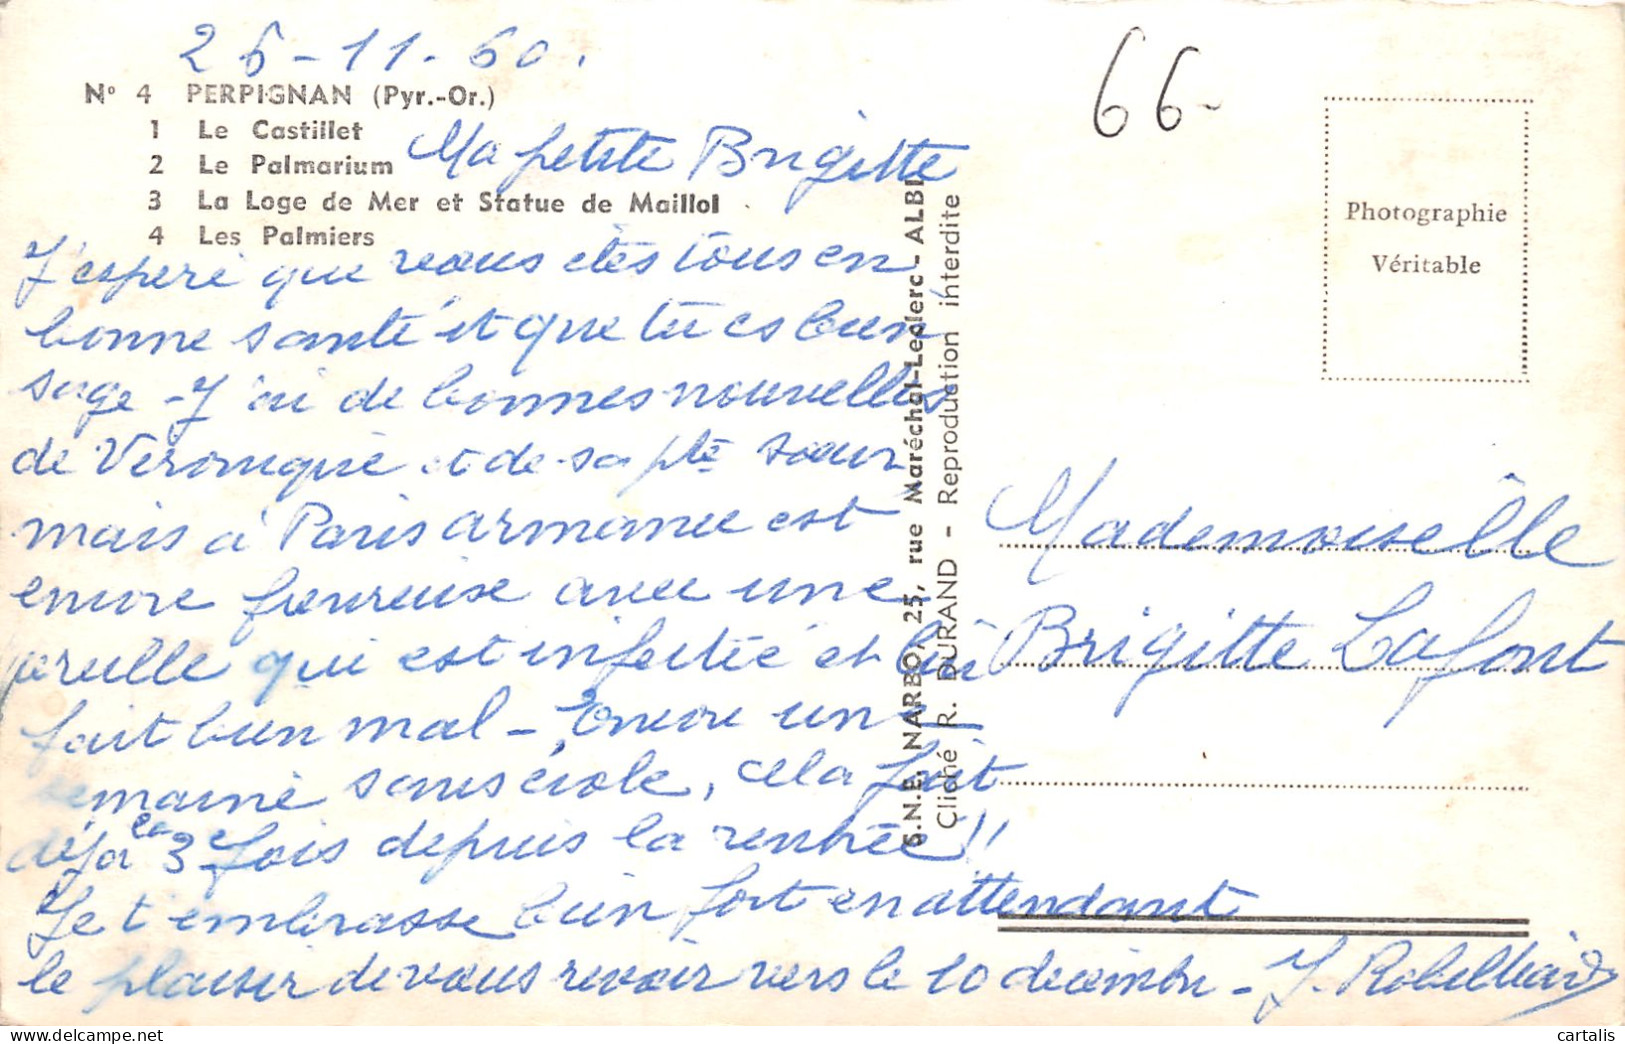 26-11-60.
N° 4 PERPIGNAN (Pyr.-Or.)
1 Le Castillet
2 Le Palmarium
3 La Loge de Mer et Statue de Maillol
4 Les Palmiers
Ma petite Brigitte
J'espère que vous êtes tous en
bonne santé et que tu es bien
sage - J'ai de bonnes nouvelles
de Véronique et de sa pte soeur
mais à Paris armanee est
encore fievreuse avec une
oreille qui est infectée et lui
fait bien mal - Encore une
semaine sans école, cela fait
déjà la 3e fois depuis la rentrée !!
Je t'embrasse bien fort en attendant
le plaisir de vous revoir vers le 10 décembre - J. Robelliard
S.N.E. NARBO, 25, rue Maréchal-Leclerc - ALBI
Cliché R. DURAND - Reproduction interdite
66-
Photographie
Véritable
Mademoiselle
Brigitte Lafont
cartalis.com